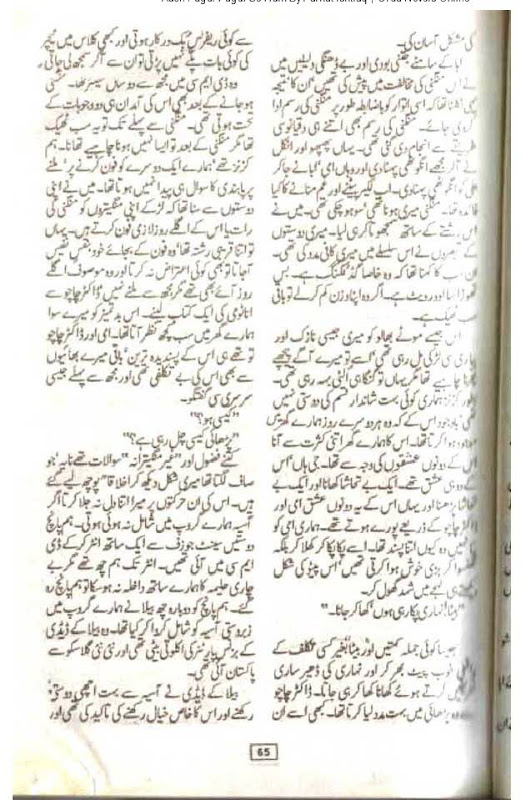 کی مشکل آسان کی۔
ابا کے سامنے جتنی بودی اور بے ڈھنگی دلیلیں میں
نے اس منگنی کی مخالفت میں پیش کی تھیں ان کا نتیجہ
یہی نکلنا تھا کہ اسی اتوار کو باضابطہ طور پر منگنی کی رسم ادا
کر دی جائے۔ منگنی کی رسم بھی اتنے ہی دقیانوسی
طریقے سے انجام دی گئی تھی۔ یہاں پھپھو اور انکل
نے آکر مجھے انگوٹھی پہنا دی اور وہاں امی‘ ابا نے جا کر
علی کو انگوٹھی پہنا دی۔ اب لکیر پیٹنے اور غم منانے کا کیا
فائدہ تھا۔ منگنی میری ہونا تھی سو ہو چکی تھی۔ میں نے
اس رشتے کے ساتھ سمجھوتا کر ہی لیا۔ میری دوستوں
کے تبصروں نے اس سلسلے میں میری کافی مدد کی تھی۔
ان سب کا کہنا تھا کہ وہ خاصا گڈ لکنگ ہے۔ بس
تھوڑا سا اوور ویٹ ہے۔ اگر وہ اپنا وزن کم کر لے تو باقی
سب ٹھیک ہے۔
اس جیسے موٹے بھالو کو میری جیسی نازک اور
پیاری سی لڑکی مل رہی تھی‘ اسے تو میرے آگے پیچھے
پھرنا چاہیے تھا مگر یہاں تو گنگا ہی الٹی بہہ رہی تھی۔
بطور کزنز ہماری کوئی بہت شاندار قسم کی دوستی نہیں
تھی باوجود اس کے کہ وہ ہر دوسرے روز ہمارے گھر میں
موجود ہوا کرتا تھا۔ اس کا ہمارے گھر اتنی کثرت سے آنا
اس کے دونوں عشقوں کی وجہ سے تھا۔ جی ہاں‘ اس
کے دو ہی عشق تھے۔ ایک بے تحاشا کھانا اور ایک بے
تحاشا پڑھنا اور یہاں اس کے یہ دونوں عشق امی اور
ڈاکٹر چاچو کے ذریعے پورے ہوتے تھے۔ ہماری امی کو
پتا نہیں وہ کیوں اتنا پسند تھا۔ اسے پکا پکا کر کھلا کر بلکہ
ٹھسا کر بڑی خوش ہوا کرتی تھیں‘ اس پیڑ کی شکل
دیکھتے ہی لہجے میں شہد گھول کر۔
”بیٹا! نہاری پکا رہی ہوں‘ کھا کر جانا۔“
جیسا کوئی جملہ کہتیں اور بیٹا بغیر کسی تکلف کے
خوب پیٹ بھر کر اور نہاری کی ڈھیر ساری
تعریفیں کرتے ہوئے کھانا کھا کر ہی جاتا۔ ڈاکٹر چاچو
سے وہ پڑھائی میں بہت مدد لیا کرتا تھا۔ کبھی اسے ان
سے کوئی ریفرنس بک درکار ہوتی اور کبھی کلاس میں ٹیچر
کی کوئی بات پلے نہیں پڑتی تو ان سے آکر سمجھی جاتی،
وہ ڈی ایم سی میں مجھ سے دو سال سینئر تھا۔ منگنی
ہو جانے کے بعد بھی اس کی آمد ان ہی دو وجوہات کے
تحت ہوتی تھی۔ منگنی سے پہلے تک تو یہ سب ٹھیک
تھا مگر منگنی کے بعد تو ایسا نہیں ہونا چاہیے تھا نا۔ ہم
کزنز تھے‘ ہمارے ایک دوسرے کو فون کرنے پر‘ ملنے
پر پابندی کا سوال ہی پیدا نہیں ہوتا تھا۔ میں نے اپنی
دوستوں سے سنا تھا کہ لڑکے اپنی منگیتروں کو منگنی کی
رات یا اس کے اگلے روز لازمی فون کرتے ہیں۔ یہاں
تو اتنا قریبی رشتہ تھا‘ وہ فون کے بجائے خود بنفس نفیس
آجاتا تو بھی کوئی اعتراض نہ کرتا اور وہ موصوف اگلے
روز آئے بھی تھے مگر مجھ سے ملنے نہیں‘ ڈاکٹر چاچو سے
اناٹومی کی ایک کتاب لینے۔ اس بدتمیز کو میرے سوا
ہمارے گھر میں سب کچھ نظر آتا تھا۔ امی اور ڈاکٹر چاچو
تو تھے ہی اس کے پسندیدہ ترین‘ باقی میرے بھائیوں
سے بھی اس کی بے تکلفی تھی اور مجھ سے پہلے جیسی
سرسری سی گفتگو۔
”کیسی ہو؟“
”پڑھائی کیسی چل رہی ہے؟“
کتنے فضول اور ”غیر منگیترانہ“ سوالات تھے نا یہ‘ جو
صاف لگتا تھا میری شکل دیکھ کر اخلاقاً پوچھ لیے گئے
ہیں۔ اس کی ان حرکتوں پر میرا اتنا دل نہ جلا کرتا اگر
آسیہ ہمارے گروپ میں شامل نہ ہوئی ہوتی۔ ہم پانچ
دوستیں سینٹ جوزف سے ایک ساتھ انٹر کر کے ڈی
ایم سی میں آئی تھیں۔ انٹر تک ہم چھ تھے مگر بے
چاری حلیمہ کا ہمارے ساتھ داخلہ نہ ہو سکا تو ہم پانچ رہ
گئے۔ ہم پانچ کو دوبارہ چھ بیلا نے ہمارے گروپ میں
زبردستی آسیہ کو شامل کروا کر کیا تھا۔ وہ بیلا کے ڈیڈی
کے بزنس پارٹنر کی اکلوتی بیٹی تھی اور نئی نئی گلاسگو سے
پاکستان آئی تھی۔
بیلا کے ڈیڈی نے آسیہ سے بہت اچھی دوستی
رکھنے اور اس کا خاص خیال رکھنے کی تاکید کی تھی اور
65